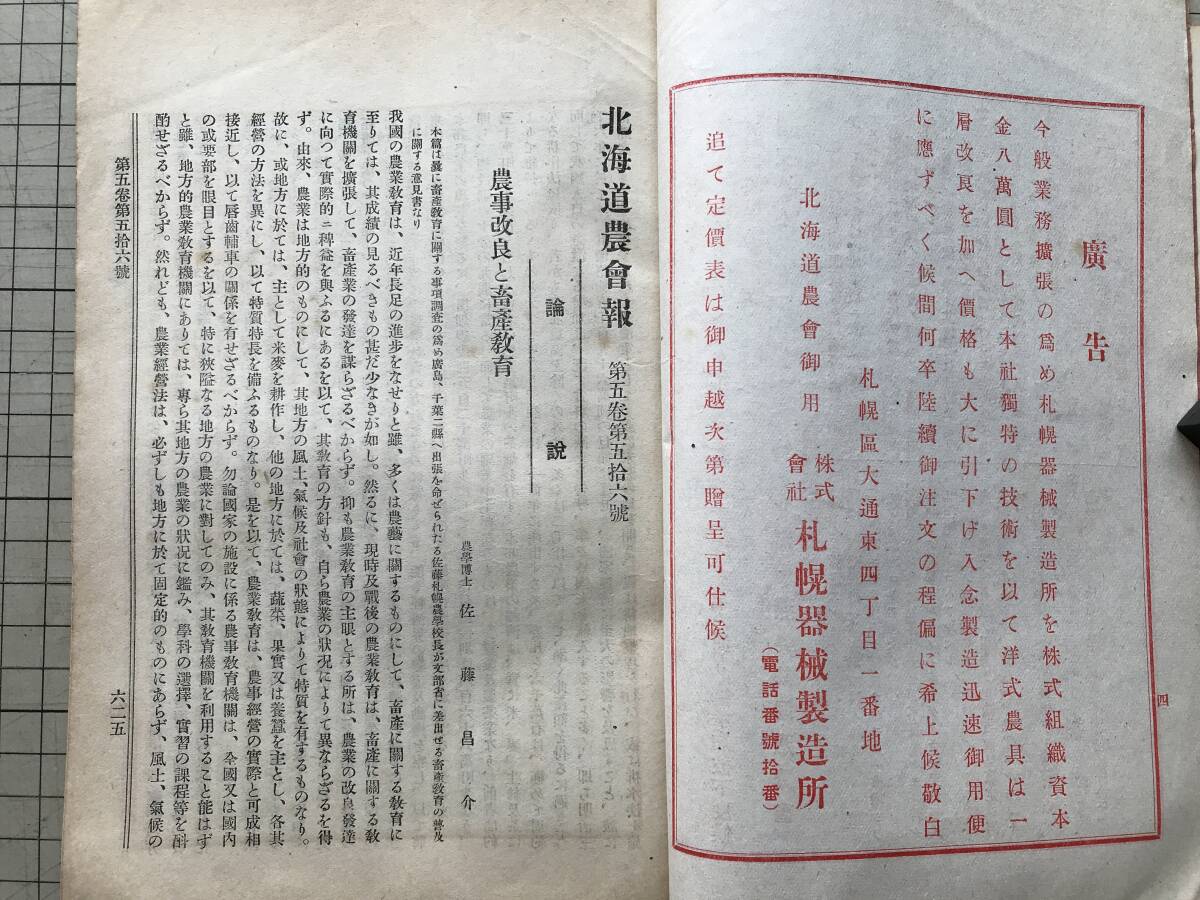 四
廣告
今般業務擴張の爲め札幌器械製造所を株式組織資本
金八萬圓として本社獨特の技術を以て洋式農具は一
層改良を加へ價格も大に引下げ入念製造迅速御用便
に應ずべく候間何卒陸續御注文の程偏に希上候敬白
札幌區大通東四丁目一番地
北海道農會御用
株式會社
札幌器械製造所
(電話番號拾番)
追て定價表は御申越次第贈呈可仕候
北海道農會報
第五卷第五拾六號
論說
農事改良と畜產敎育
農學博士 佐藤昌介
本篇は曩に畜產敎育に關する事項調査の爲め廣島、千葉二縣へ出張を命ぜられたる佐藤札幌農學校長が文部省に差出せる畜產敎育の普及
に關する意見書なり
我國の農業敎育は、近年長足の進步をなせりと雖、多くは農藝に關するものにして、畜產に關する敎育に
至りては、其成績の見るべきもの甚だ少なきが如し。然るに、現時及戰後の農業敎育は、畜產に關する敎
育機關を擴張して、畜產業の發達を謀らざるべからず。抑も農業敎育の主眼とする所は、農業の改良發達
に向つて實際的ニ裨益を與ふるにあるを以て、其敎育の方針も、自ら農業の狀況によりて異ならざるを得
ず。由來、農業は地方的のものにして、其地方の風土、氣候及社會の狀態によりて特質を有するものなり。
故に、或地方に於ては、主として米麥を耕作し、他の地方に於ては、蔬菜、果實又は養蠶を主とし、各其
經營の方法を異にし、以て特質特長を備ふるものなり。是を以て、農業敎育は、農事經營の實際と可成相
接近し、以て唇齒輔車の關係を有せざるべからず。勿論國家の施設に係る農事敎育機關は、全國又は國內
の或要部を眼目とするを以て、特に狹隘なる地方の農業に對してのみ、其敎育機關を利用すること能はず
と雖、地方的農業敎育機關にありては、專ら其地方の農業の狀況に鑑み、學科の選擇、實習の課程等を斟
酌せざるべからず。然れども、農業經營法は、必ずしも地方に於て固定的のものにあらず、風土、氣候の
第五卷第五拾六號
六二五